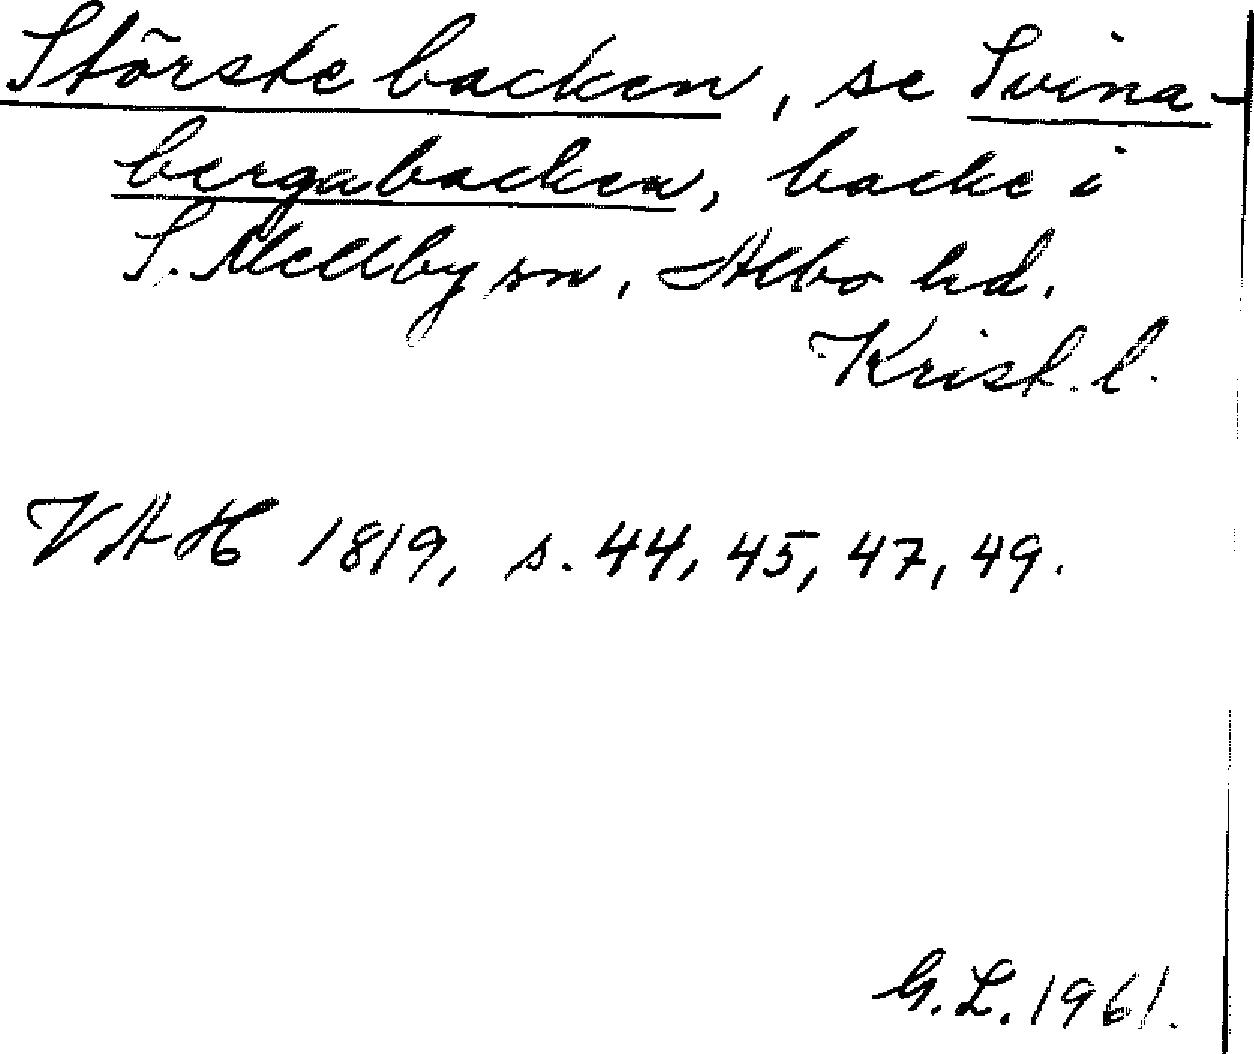 Störste backen, se Svina-
bergabacken, backe i
S. Mellby sn, Albo hd.
Krist. l.
VAH 1819, s. 44, 45, 47, 49.
G.L. 1961.